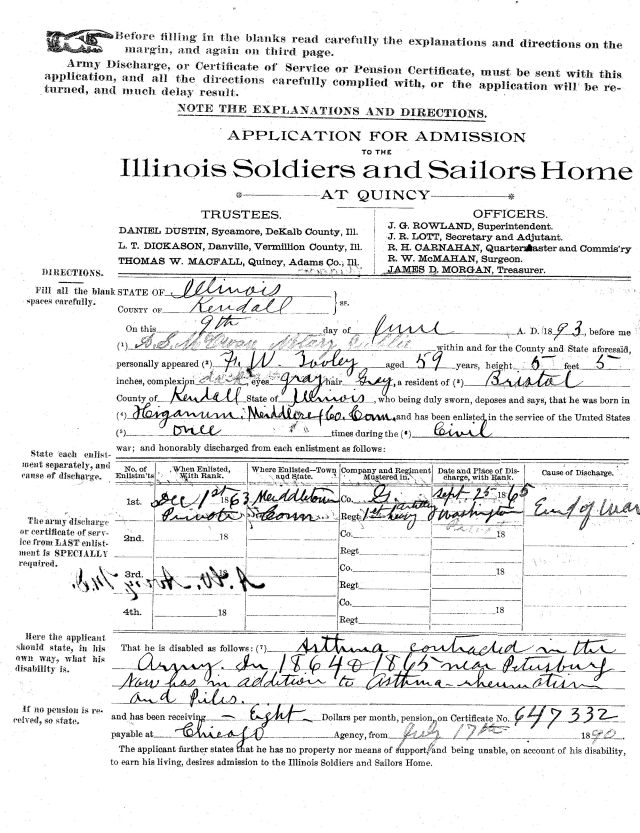 Before filling in the blanks read carefully the explanations and directions on the
margin, and again on third page.
Army Discharge, or Certificate of Service or Pension Certificate, must be sent with this
application, and all the directions carefully complied with, or the application will be re-
turned, and much delay result.
NOTE THE EXPLANATIONS AND DIRECTIONS.
APPLICATION FOR ADMISSION
TO THE
Illinois Soldiers and Sailors Home
AT QUINCY
TRUSTEES.
DANIEL DUSTIN, Sycamore, DeKalb County, Ill.
L. T. DICKASON, Danville, Vermillion County, Ill.
THOMAS W. MACFALL, Quincy, Adams Co., Ill.
OFFICERS.
J. G. ROWLAND, Superintendent.
J. R. LOTT, Secretary and Adjutant.
R. H. CARNAHAN, Quartermaster and Commis'ry
R. W. McMAHAN, Surgeon.
JAMES D. MORGAN, Treasurer.
DIRECTIONS.
Fill all the blank
spaces carefully.
STATE OF Illinois
COUNTY OF Kendall
ss.
On this 9th day of June A. D. 1893, before me
(1) Notary Public within and for the County and State aforesaid,
personally appeared (2) W Tooley aged 59 years, height 5 feet 5
inches, complexion dark eyes gray hair Grey, a resident of (3) Bristol
County of Kendall State of Illinois, who being duly sworn, deposes and says, that he was born in
(4) Higanum Co. Conn. and has been enlisted in the service of the United States
(5) once times during the (6) Civil
war; and honorably discharged from each enlistment as follows:
State each enlist-
ment separately, and
cause of discharge.
No. of
Enlistm'ts
When Enlisted,
With Rank.
Where Enlisted—Town
and State.
Company and Regiment
Mustered in.
Date and Place of Dis-
charge, with Rank.
Cause of Discharge.
1st. Dec 1st 63 Co. G. Sept. 25 1865 End of War
Private Conn Regt. 1st heavy Washington
The army discharge
or certificate of serv-
ice from LAST enlist-
ment is SPECIALLY
required.
2nd. 18 Co. 18
Regt
3rd. Co. 18
Regt
4th. 18 Co. 18
Regt
Here the applicant
should state, in his
own way, what his
disability is.
That he is disabled as follows: (7) Asthma contracted in the
Army. In 1864 & 1865 near Petersburg
Now has in addition to Asthma rheumatism
and Piles.
If no pension is re-
ceived, so state.
and has been receiving – Eight – Dollars per month, pension, on Certificate No. 647332
payable at Chicago Agency, from July 17th 1890.
The applicant further states that he has no property nor means of support, and being unable, on account of his disability,
to earn his living, desires admission to the Illinois Soldiers and Sailors Home.